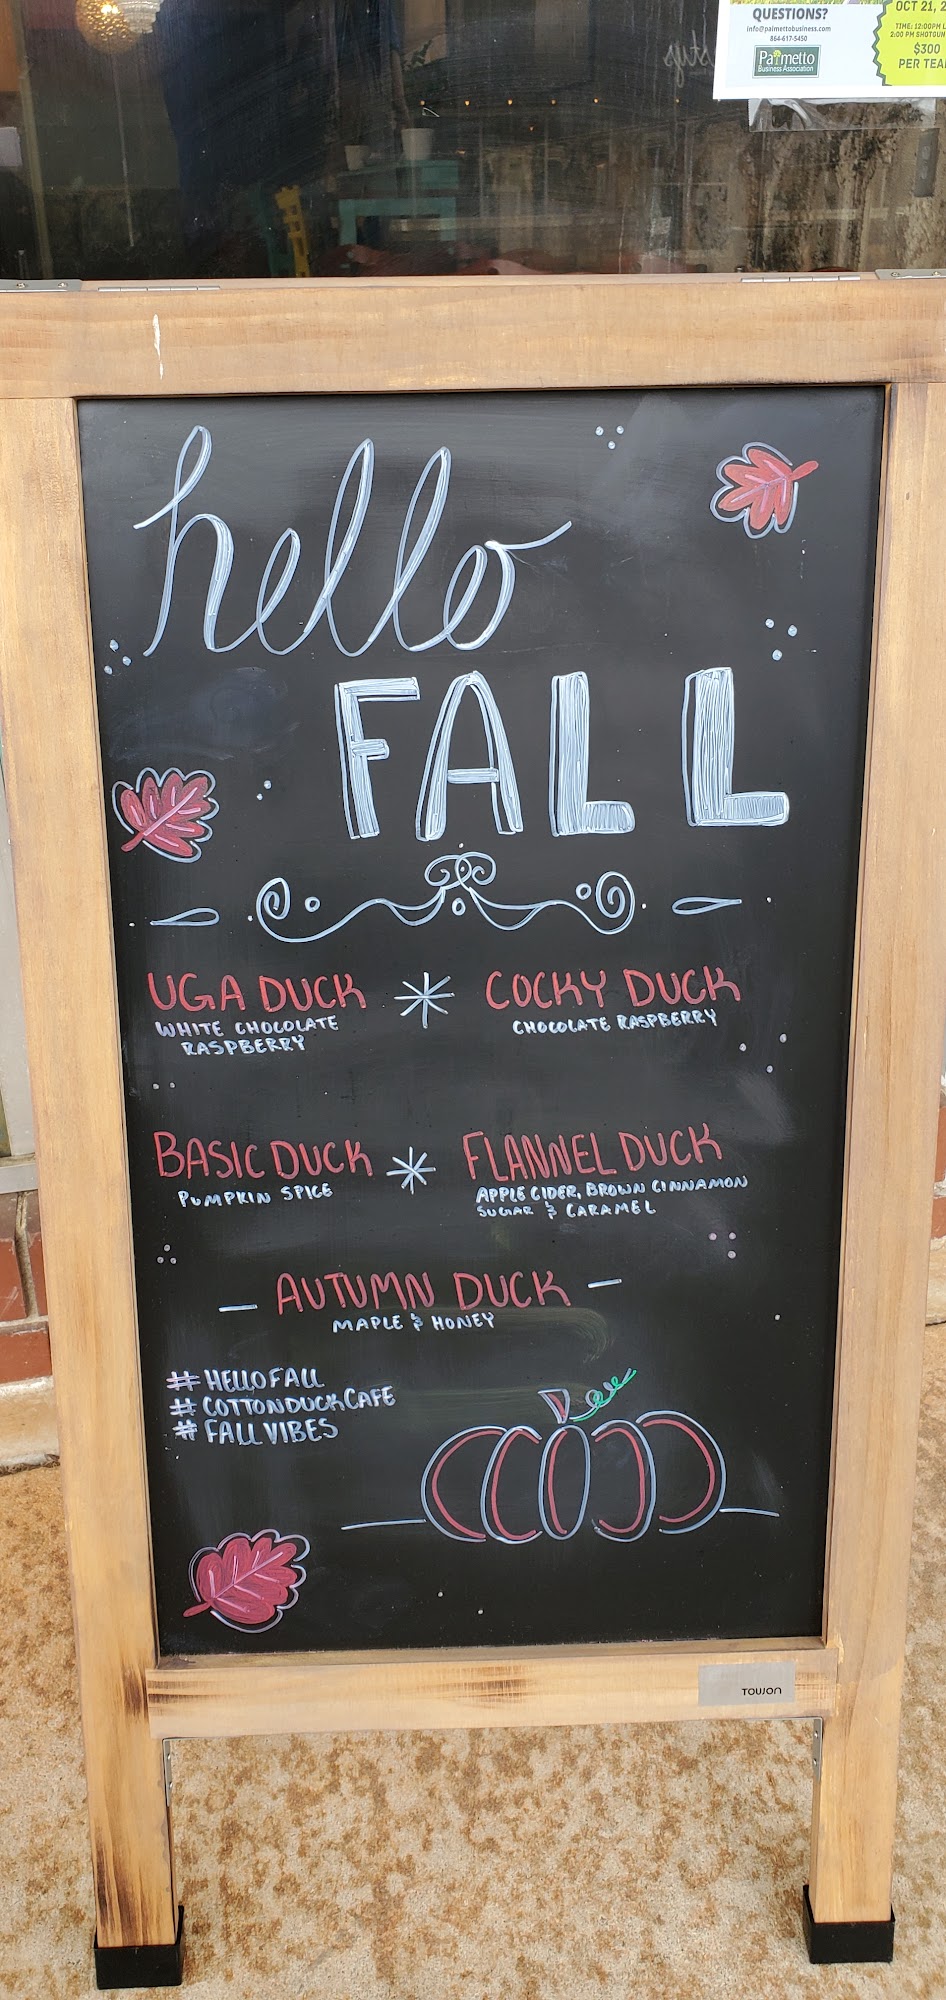 QUESTIONS?
info@palmettobusiness.com
864-617-5450
Palmetto
Business Association
OCT 21, 2
TIME: 12:00PM L
2:00 PM SHOTGUN
$300
PER TEA
hello
FALL
UGA DUCK * COCKY DUCK
WHITE CHOCOLATE
RASPBERRY
CHOCOLATE RASPBERRY
BASIC DUCK * FLANNEL DUCK
PUMPKIN SPICE
APPLE CIDER, BROWN CINNAMON
SUGAR & CARAMEL
- AUTUMN DUCK -
MAPLE & HONEY
# HELLOFALL
# COTTONDUCKCAFE
# FALLVIBES
TOUJON